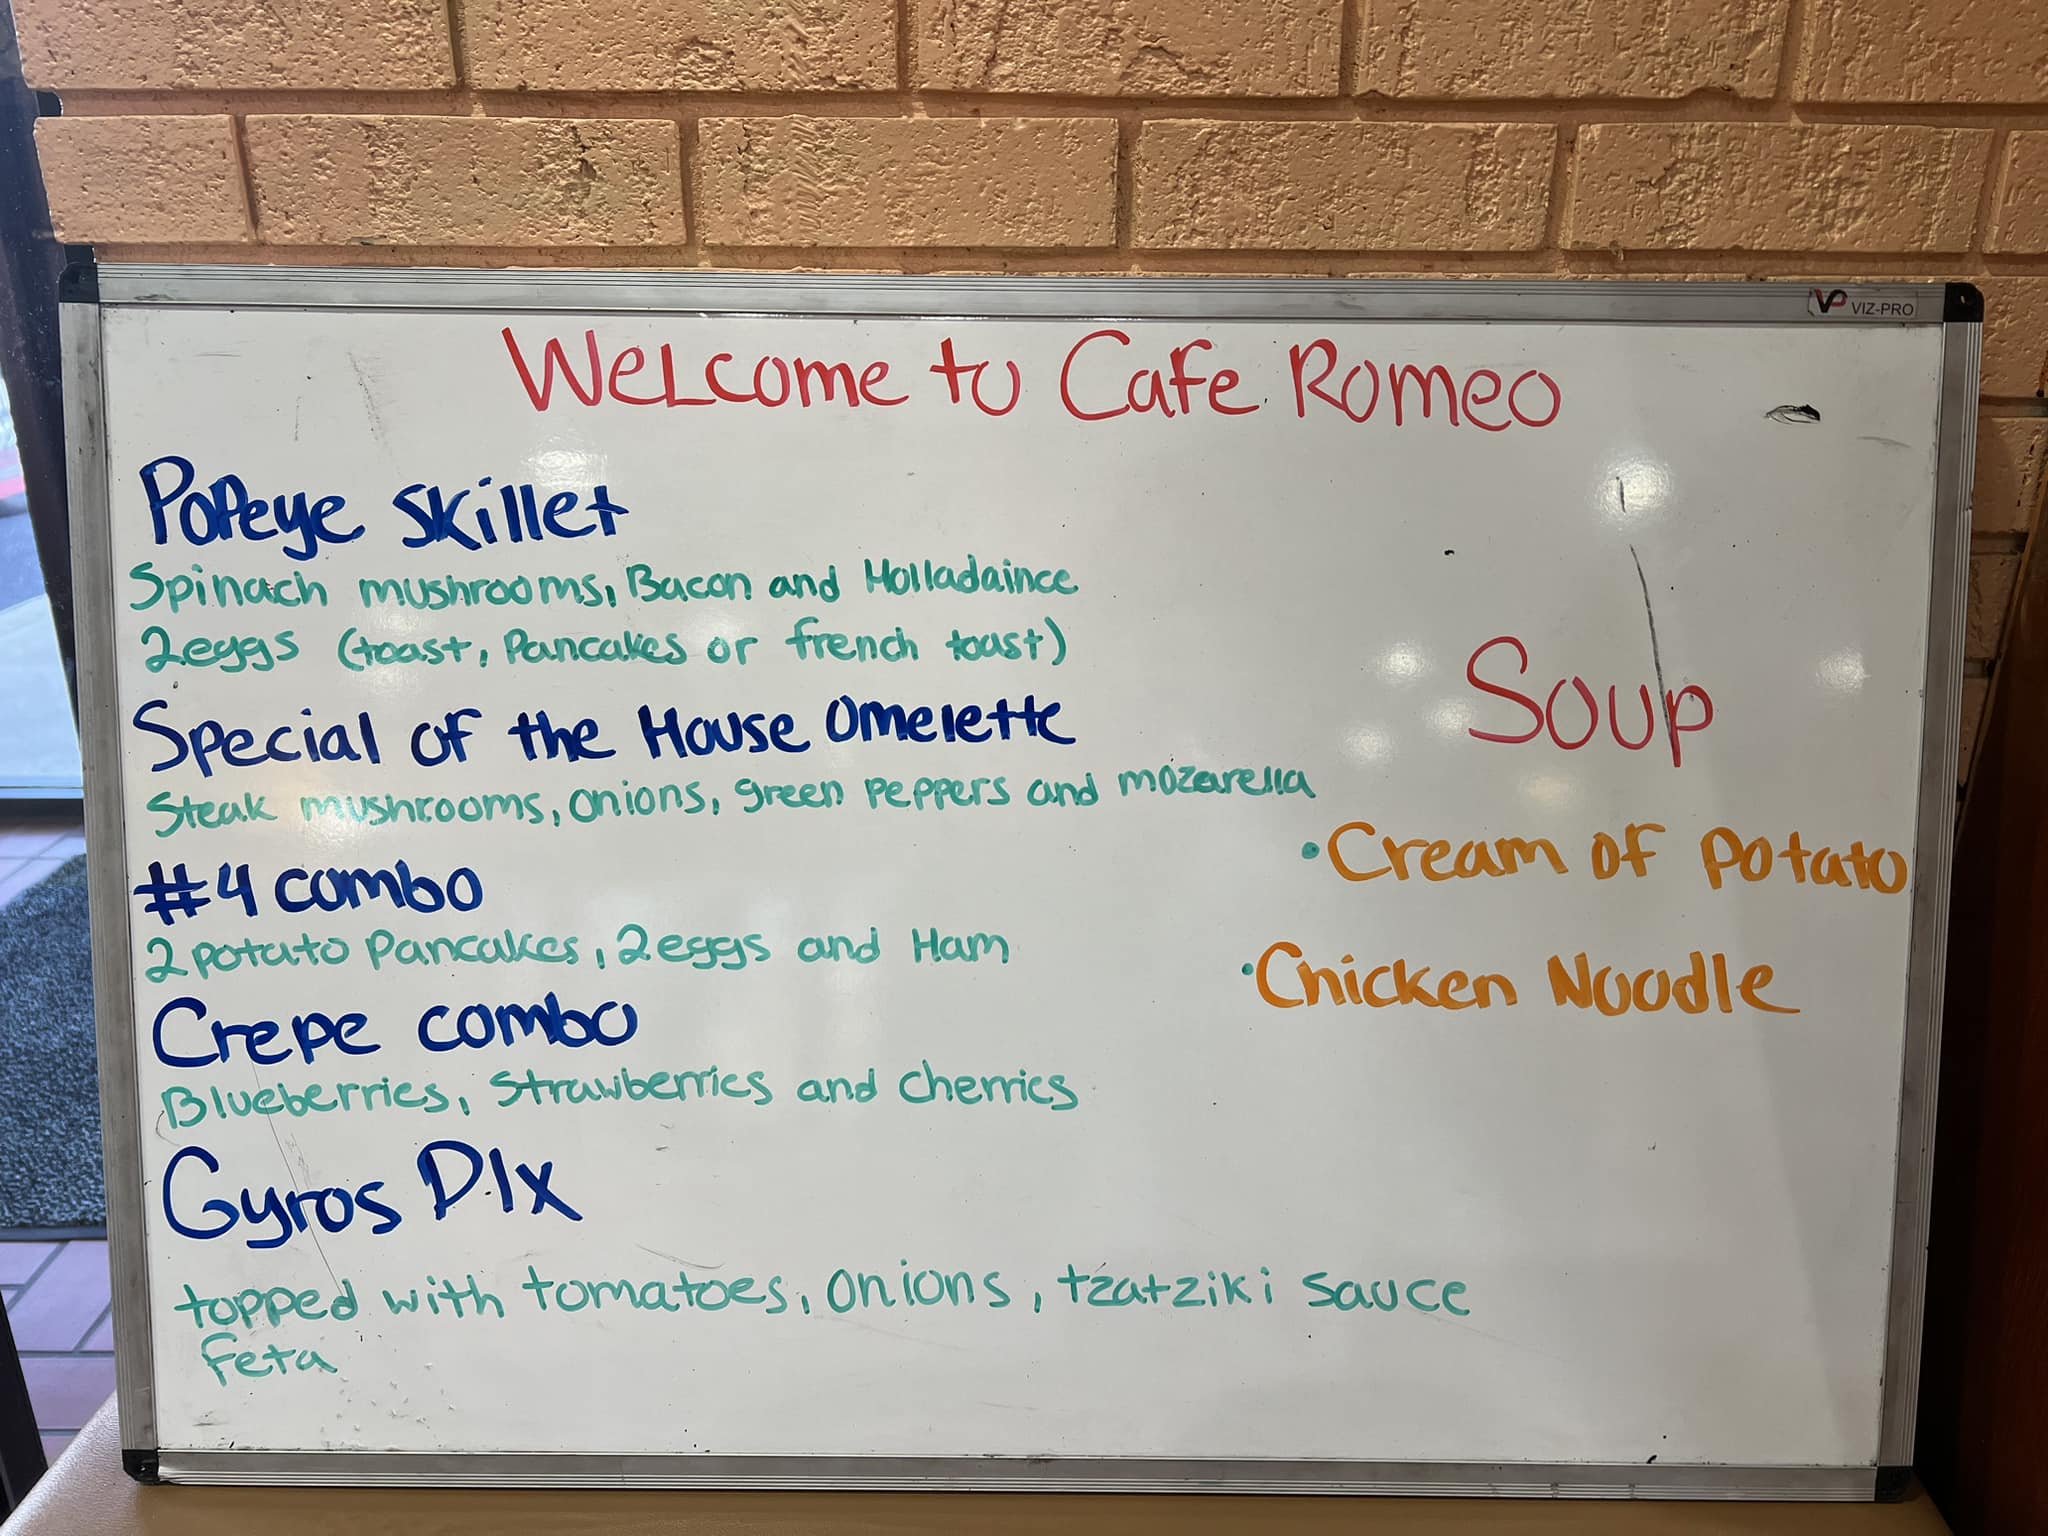 VP VIZ-PRO
Welcome to Cafe Romeo
Popeye Skillet
Spinach mushrooms, Bacon and Holladaince
2 eggs (toast, Pancakes or french toast)
Special of the House Omelette
Steak mushrooms, onions, green peppers and mozarella
#4 combo
2 potato pancakes, 2 eggs and Ham
Crepe combo
Blueberries, Strawberries and cherries
Gyros Dlx
topped with tomatoes, onions, tzatziki sauce
feta
Soup
• Cream of potato
• Chicken Noodle